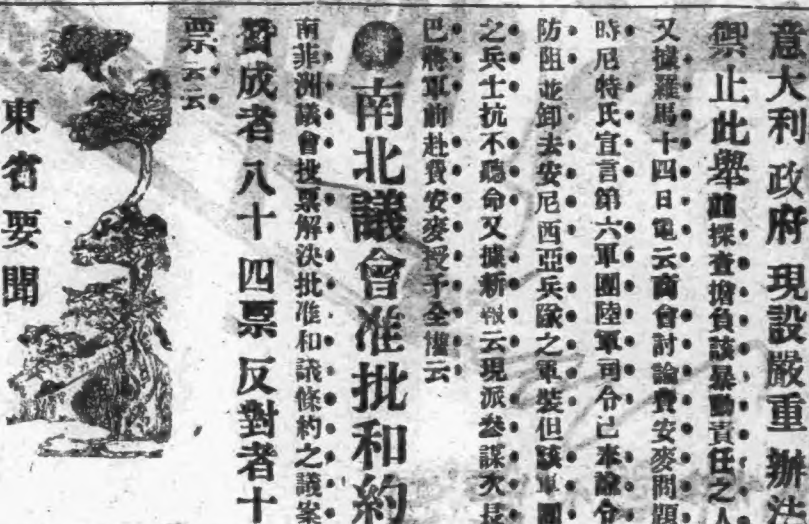 意大利政府現設嚴重辦法
禦止此舉並探查擔負該暴動責任之人
又據羅馬十四日電云商會討論費安麥問題
時尼特氏宣言第六軍團陸軍司令已奉諭令
防阻並卸去安尼西亞兵隊之軍裝但該軍團
之兵士抗不聽命又據新報云現派參謀次長
巴將軍前赴費安麥授予全權云
南北議會准批和約
南菲洲議會投票解決批准和議條約之議案
贊成者八十四票反對者十
票云云
東省要聞